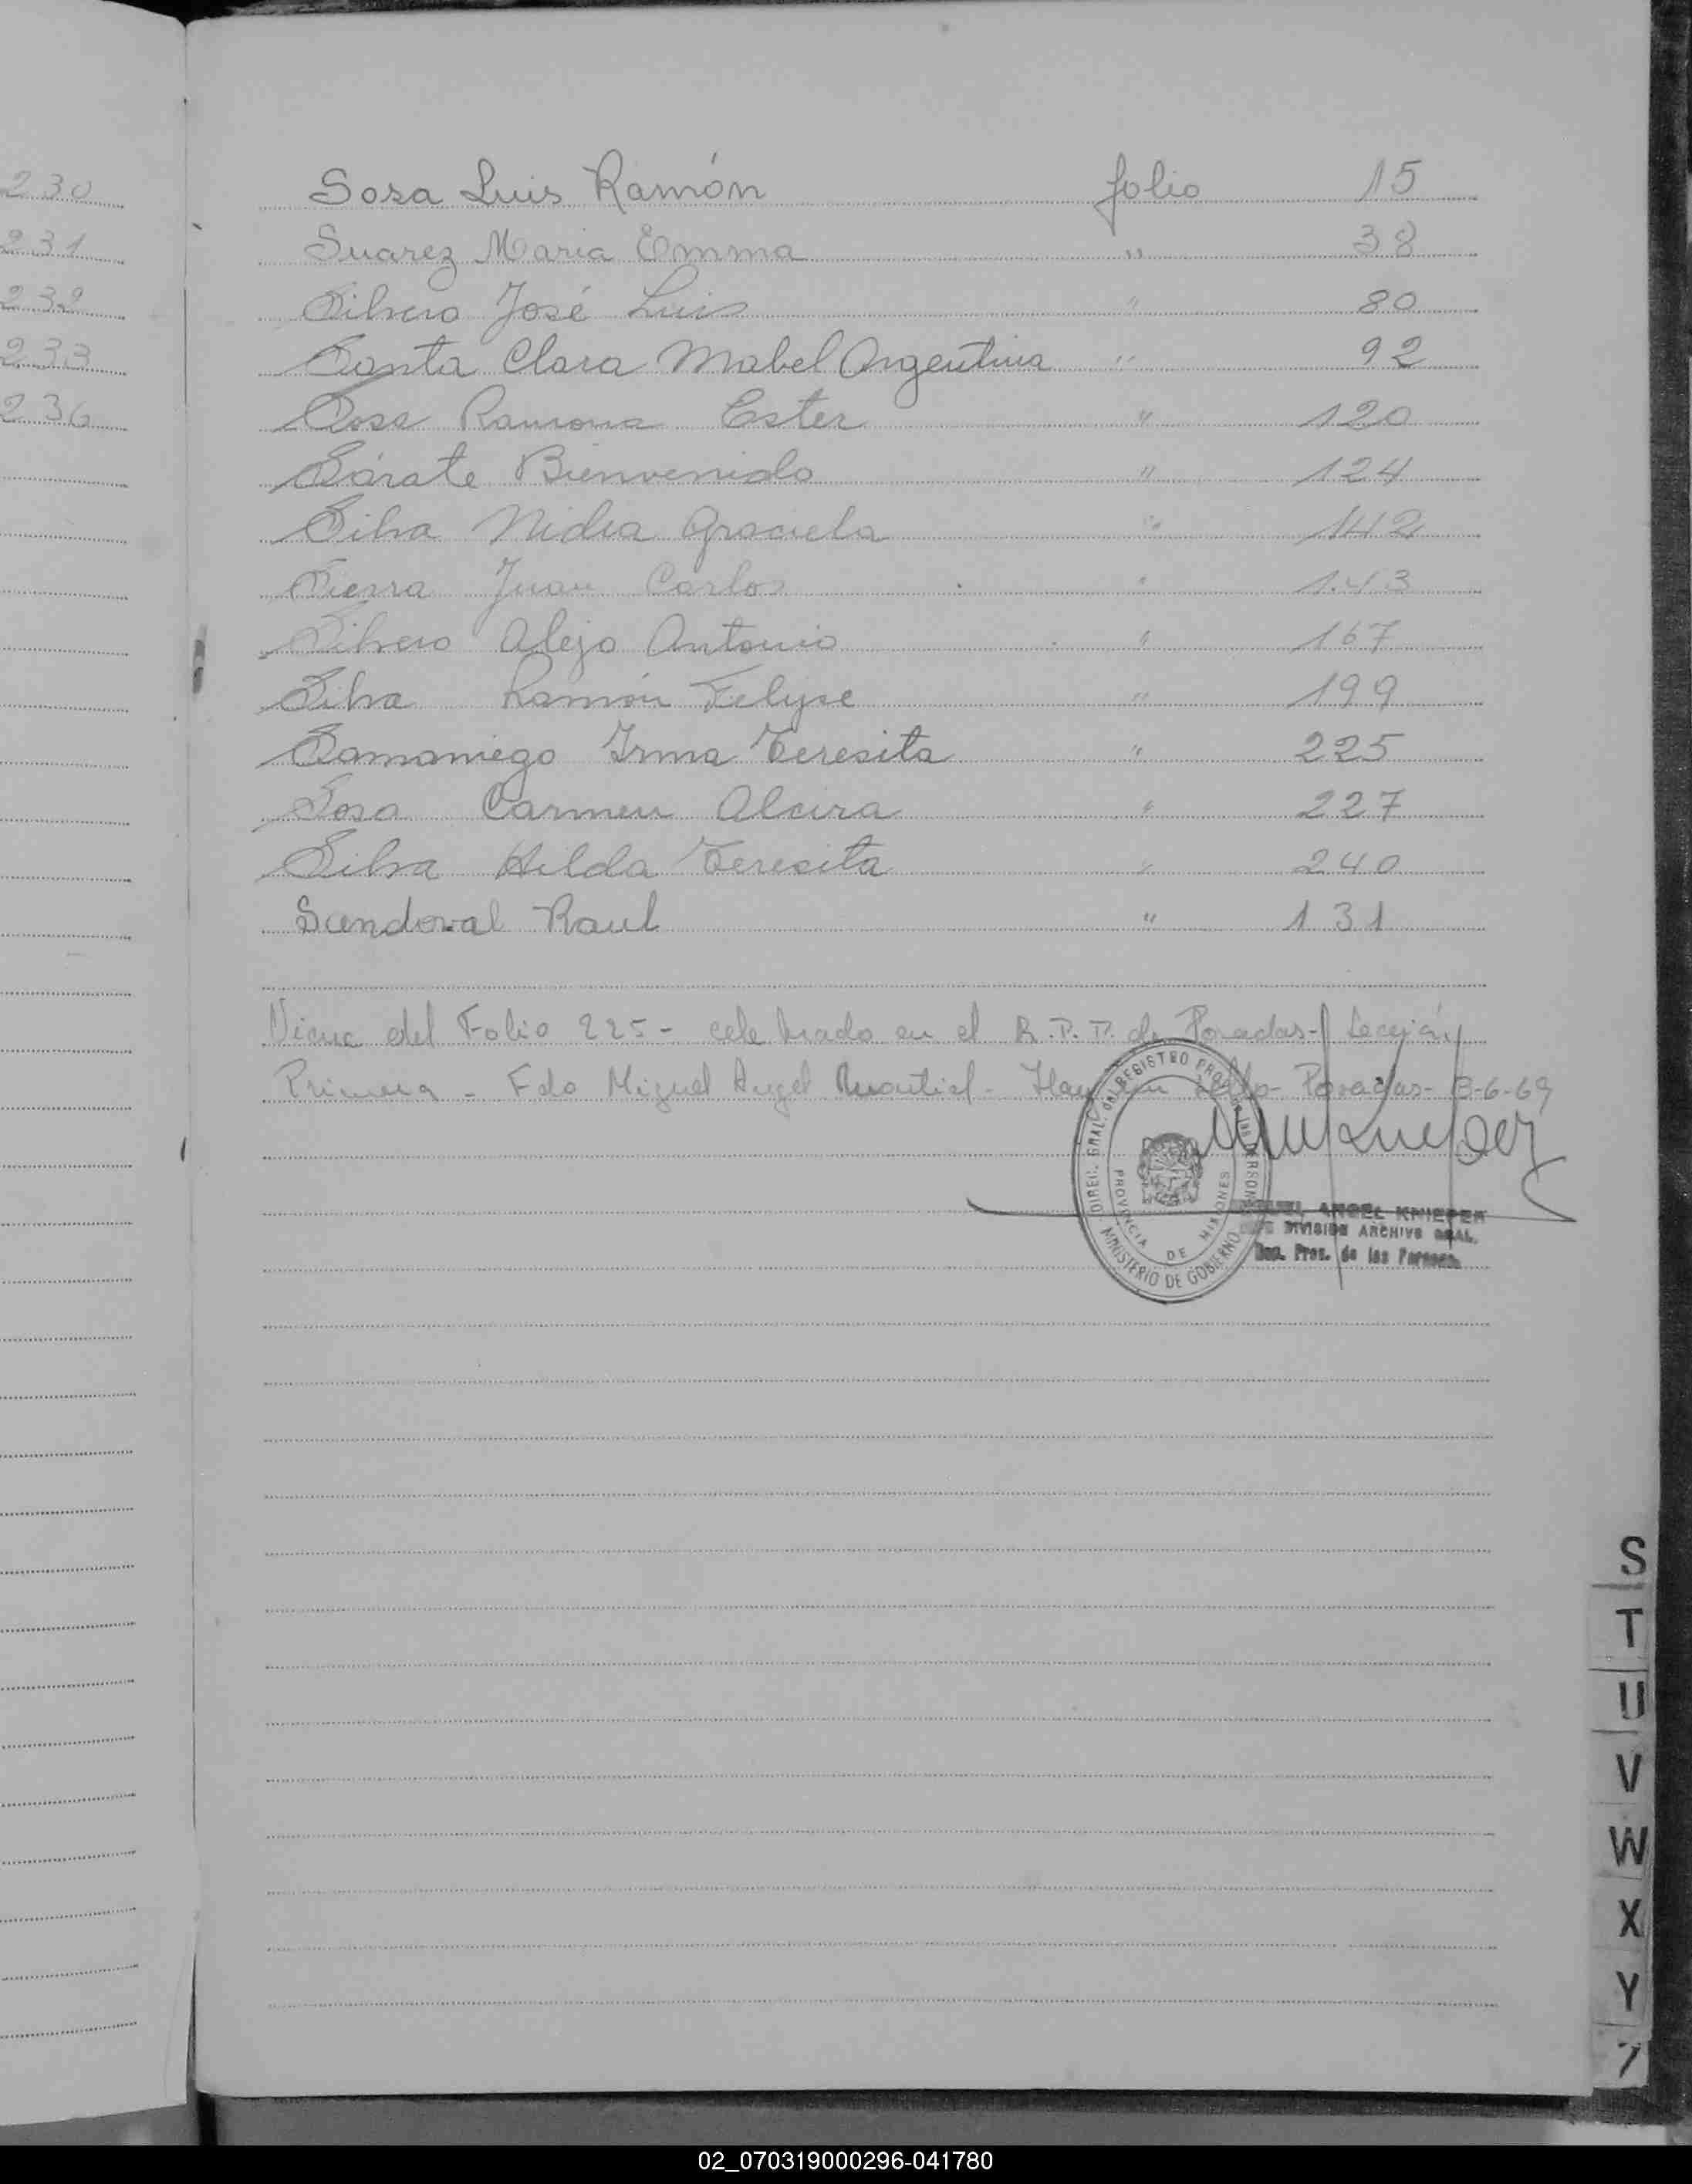 230
231
232
233
236
Sosa Luis Ramón folio 15
Suarez Maria Emma " 38
Silvero José Luis " 80
Santa Clara Mabel Argentina " 92
Sosa Ramona Ester " 120
Sárate Bienvenido " 124
Silva Nidia Graciela " 142
Sierra Juan Carlos " 143
Silvero Alejo Antonio " 167
Silva Ramón Felipe " 199
Samaniego Irma Teresita " 225
Sosa Carmen Alcira " 227
Silva Hilda Teresita " 240
Sandoval Raul " 131
Viene del Folio 225- celebrado en el R.P.P. de Posadas- Sección
Primera - Fdo Miguel Angel - Hay un sello- Posadas- -6-69
DIREC. GRAL. del REGISTRO PROV. de las PERSONAS
PROVINCIA DE MISIONES
MINISTERIO DE GOBIERNO
MIGUEL ANGEL KNIEPER
JEFE DIVISION ARCHIVO GRAL.
Reg. Prov. de las Personas
S
T
U
V
W
X
Y
Z
02_070319000296-041780